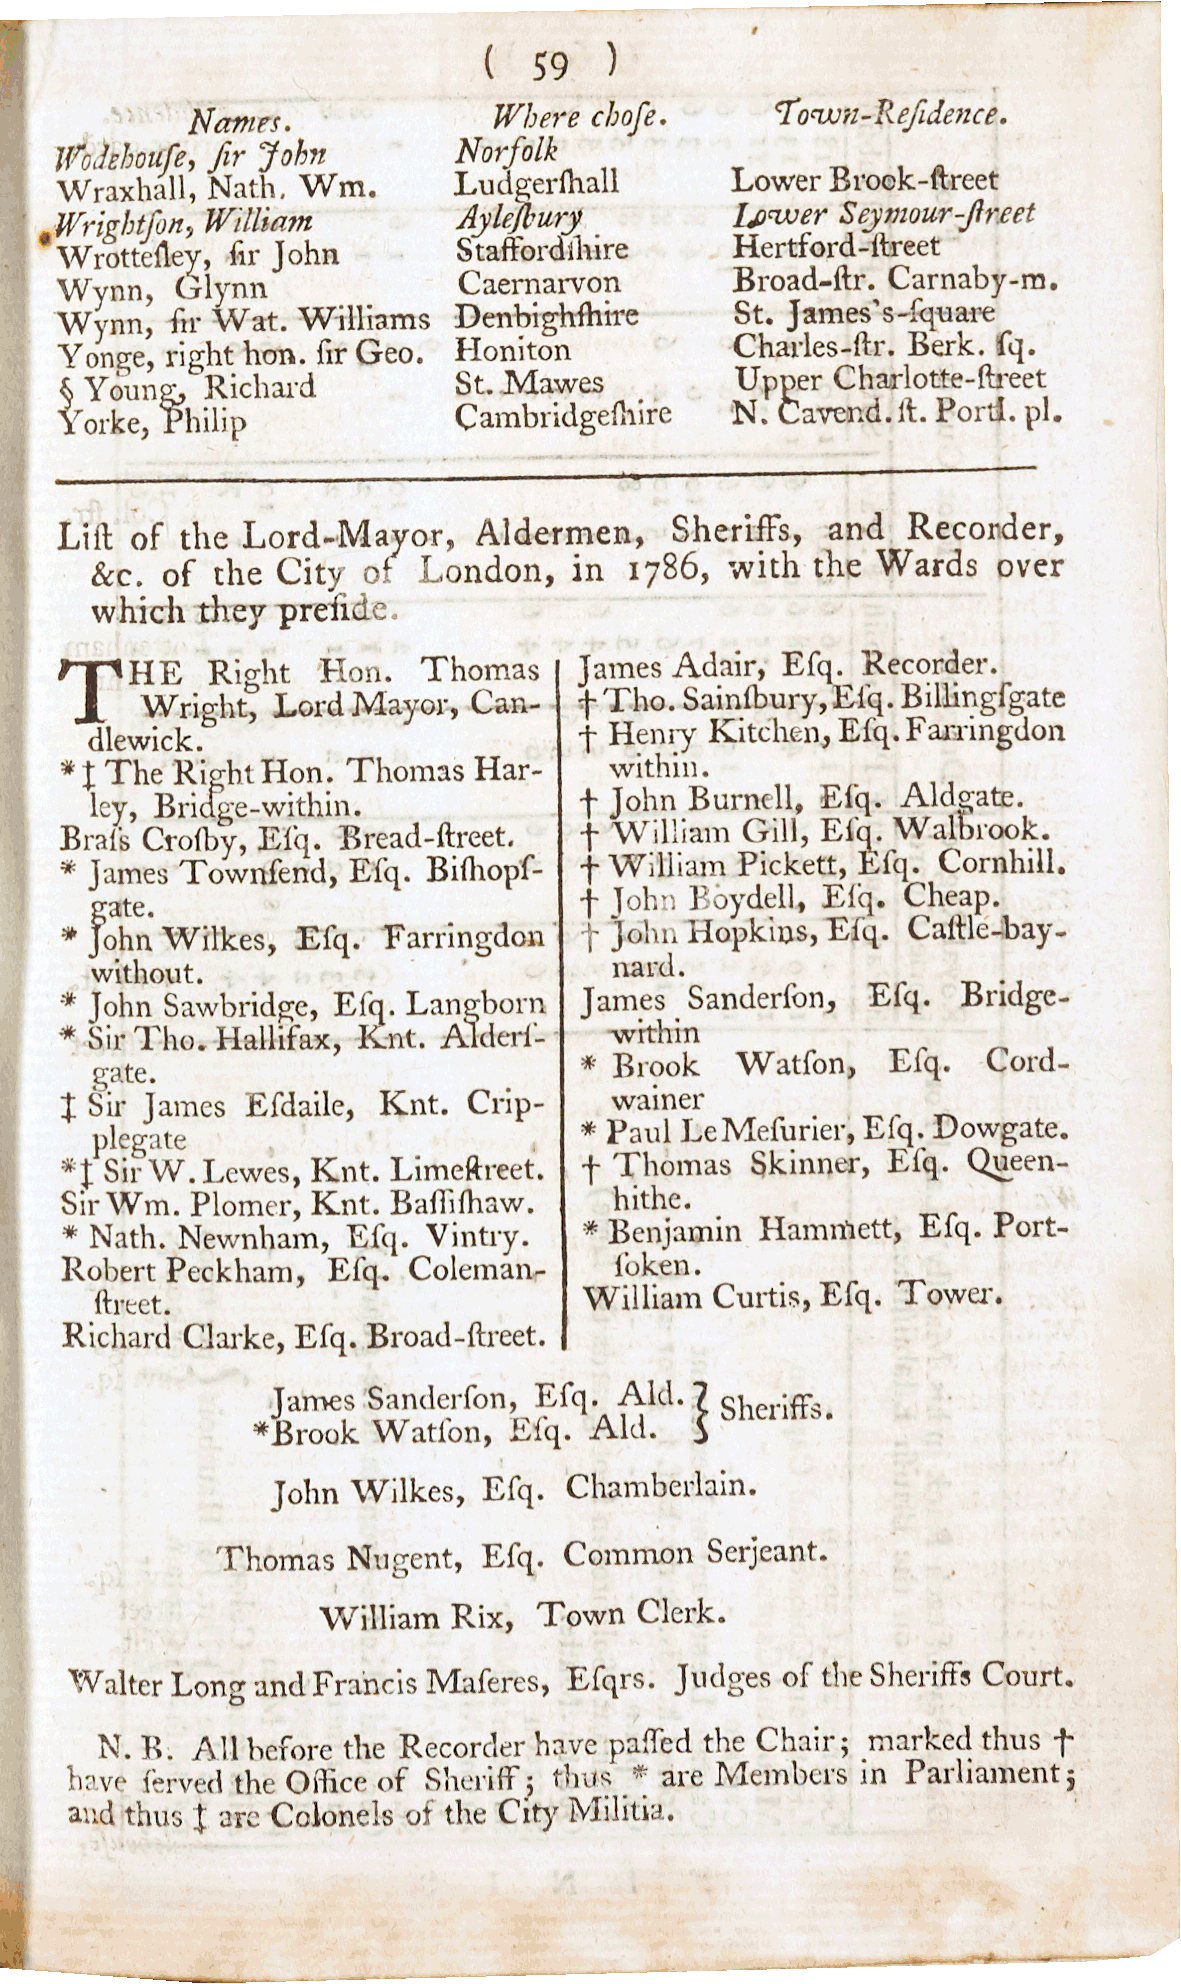 ( 59 )
Names. Where choſe. Town-Reſidence.
Wodehouſe, ſir John Norfolk
Wraxhall, Nath. Wm. Ludgerſhall Lower Brook-ſtreet
Wrightſon, William Ayleſbury Lower Seymour-ſtreet
Wrotteſley, ſir John Staffordſhire Hertford-ſtreet
Wynn, Glynn Caernarvon Broad-ſtr. Carnaby-m.
Wynn, ſir Wat. Williams Denbighſhire St. James's-ſquare
Yonge, right hon. ſir Geo. Honiton Charles-ſtr. Berk. ſq.
§ Young, Richard St. Mawes Upper Charlotte-ſtreet
Yorke, Philip Cambridgeſhire N. Cavend. ſt. Portl. pl.
Liſt of the Lord-Mayor, Aldermen, Sheriffs, and Recorder,
&c. of the City of London, in 1786, with the Wards over
which they preſide.
THE Right Hon. Thomas
Wright, Lord Mayor, Can-
dlewick.
*‡ The Right Hon. Thomas Har-
ley, Bridge-within.
Braſs Croſby, Eſq. Bread-ſtreet.
* James Townſend, Eſq. Biſhopſ-
gate.
* John Wilkes, Eſq. Farringdon
without.
* John Sawbridge, Eſq. Langborn
* Sir Tho. Hallifax, Knt. Alderſ-
gate.
‡ Sir James Eſdaile, Knt. Crip-
plegate
*‡ Sir W. Lewes, Knt. Limeſtreet.
Sir Wm. Plomer, Knt. Baſſiſhaw.
* Nath. Newnham, Eſq. Vintry.
Robert Peckham, Eſq. Coleman-
ſtreet.
Richard Clarke, Eſq. Broad-ſtreet.
James Adair, Eſq. Recorder.
† Tho. Sainſbury, Eſq. Billingſgate
† Henry Kitchen, Eſq. Farringdon
within.
† John Burnell, Eſq. Aldgate.
† William Gill, Eſq. Walbrook.
† William Pickett, Eſq. Cornhill.
† John Boydell, Eſq. Cheap.
† John Hopkins, Eſq. Caſtle-bay-
nard.
James Sanderſon, Eſq. Bridge-
within
* Brook Watſon, Eſq. Cord-
wainer
* Paul Le Meſurier, Eſq. Dowgate.
† Thomas Skinner, Eſq. Queen-
hithe.
* Benjamin Hammett, Eſq. Port-
ſoken.
William Curtis, Eſq. Tower.
James Sanderſon, Eſq. Ald. } Sheriffs.
*Brook Watſon, Eſq. Ald.
John Wilkes, Eſq. Chamberlain.
Thomas Nugent, Eſq. Common Serjeant.
William Rix, Town Clerk.
Walter Long and Francis Maſeres, Eſqrs. Judges of the Sheriffs Court.
N. B. All before the Recorder have paſſed the Chair; marked thus †
have ſerved the Office of Sheriff; thus * are Members in Parliament;
and thus ‡ are Colonels of the City Militia.